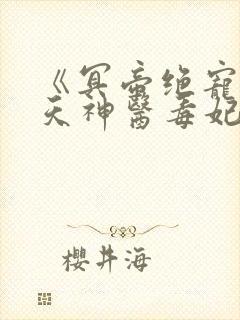 《冥帝绝宠
天神醫毒妃
櫻井海